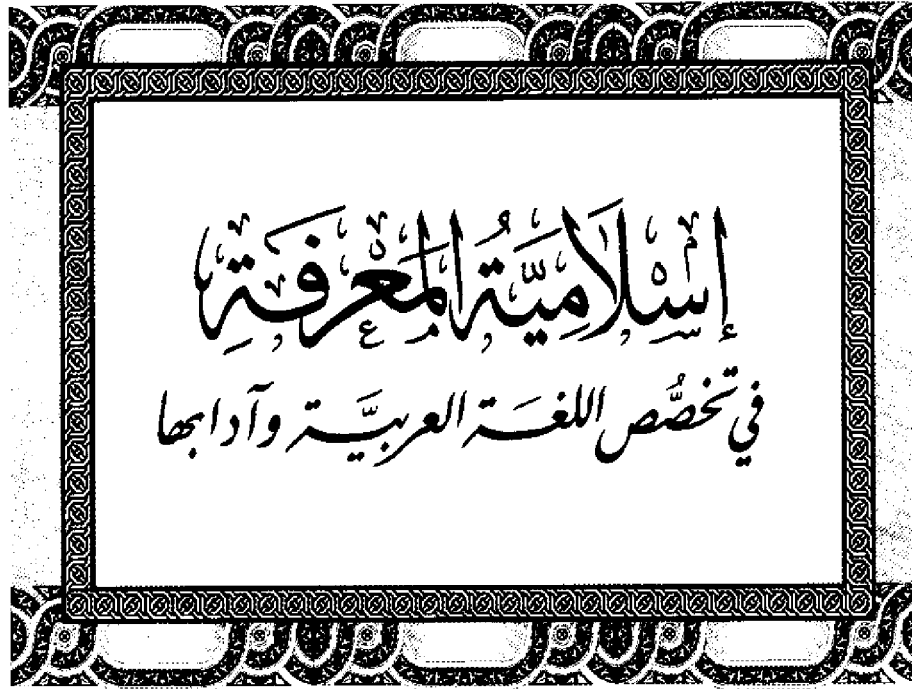 إِسْلَامِيَّةُ الْمَعْرِفَةِ
في تخصُّص اللغَة العربيَّة وآدابها